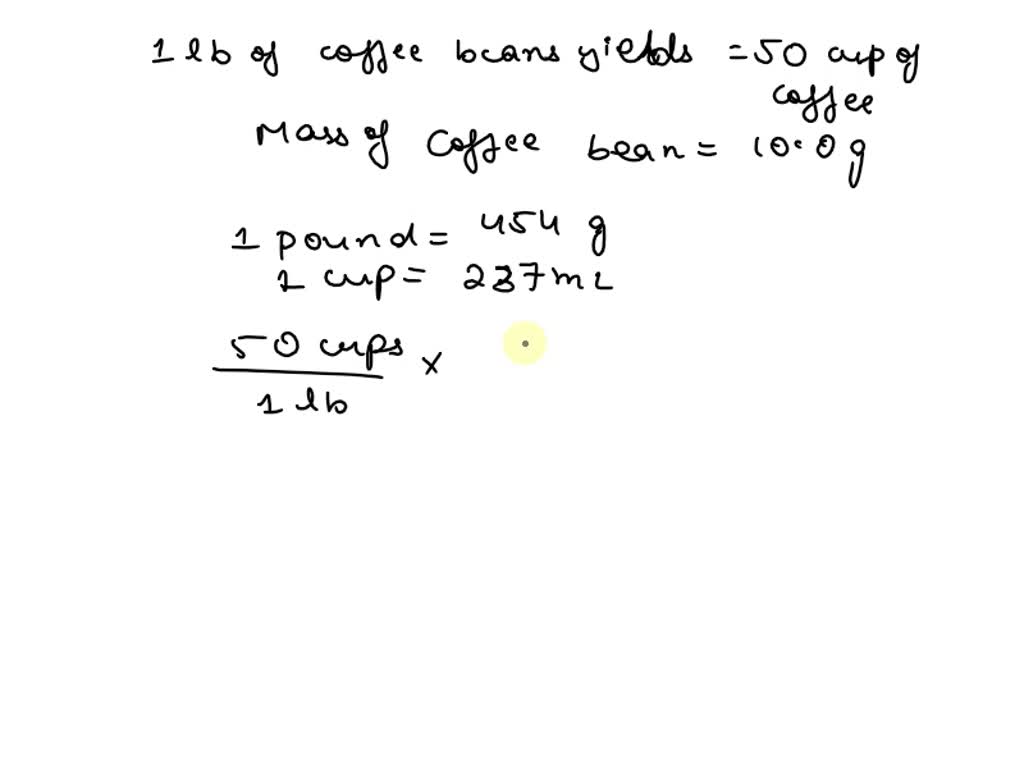 1 lb of coffee beans yields = 50 cup of
coffee
Mass of Coffee bean = 10.0 g
1 pound = 454 g
1 cup = 237 mL
50 cups ×
1 lb